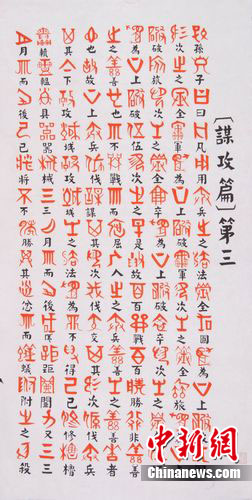 〔謀攻篇〕第三
孫子曰凡用兵之法全國為上破
國次之全軍為上破軍次之全旅為上
破旅次之全卒為上破卒次之全伍
為上破伍次之是故百戰百勝非善
之善者也不戰而屈人之兵善之善者
也故上兵伐謀其次伐交其次伐兵
其下攻城攻城之法為不得已修櫓
轒轀具器械三月而後成距闉又三
月而後已將不勝其忿而蟻附之殺
中新网
Chinanews.com